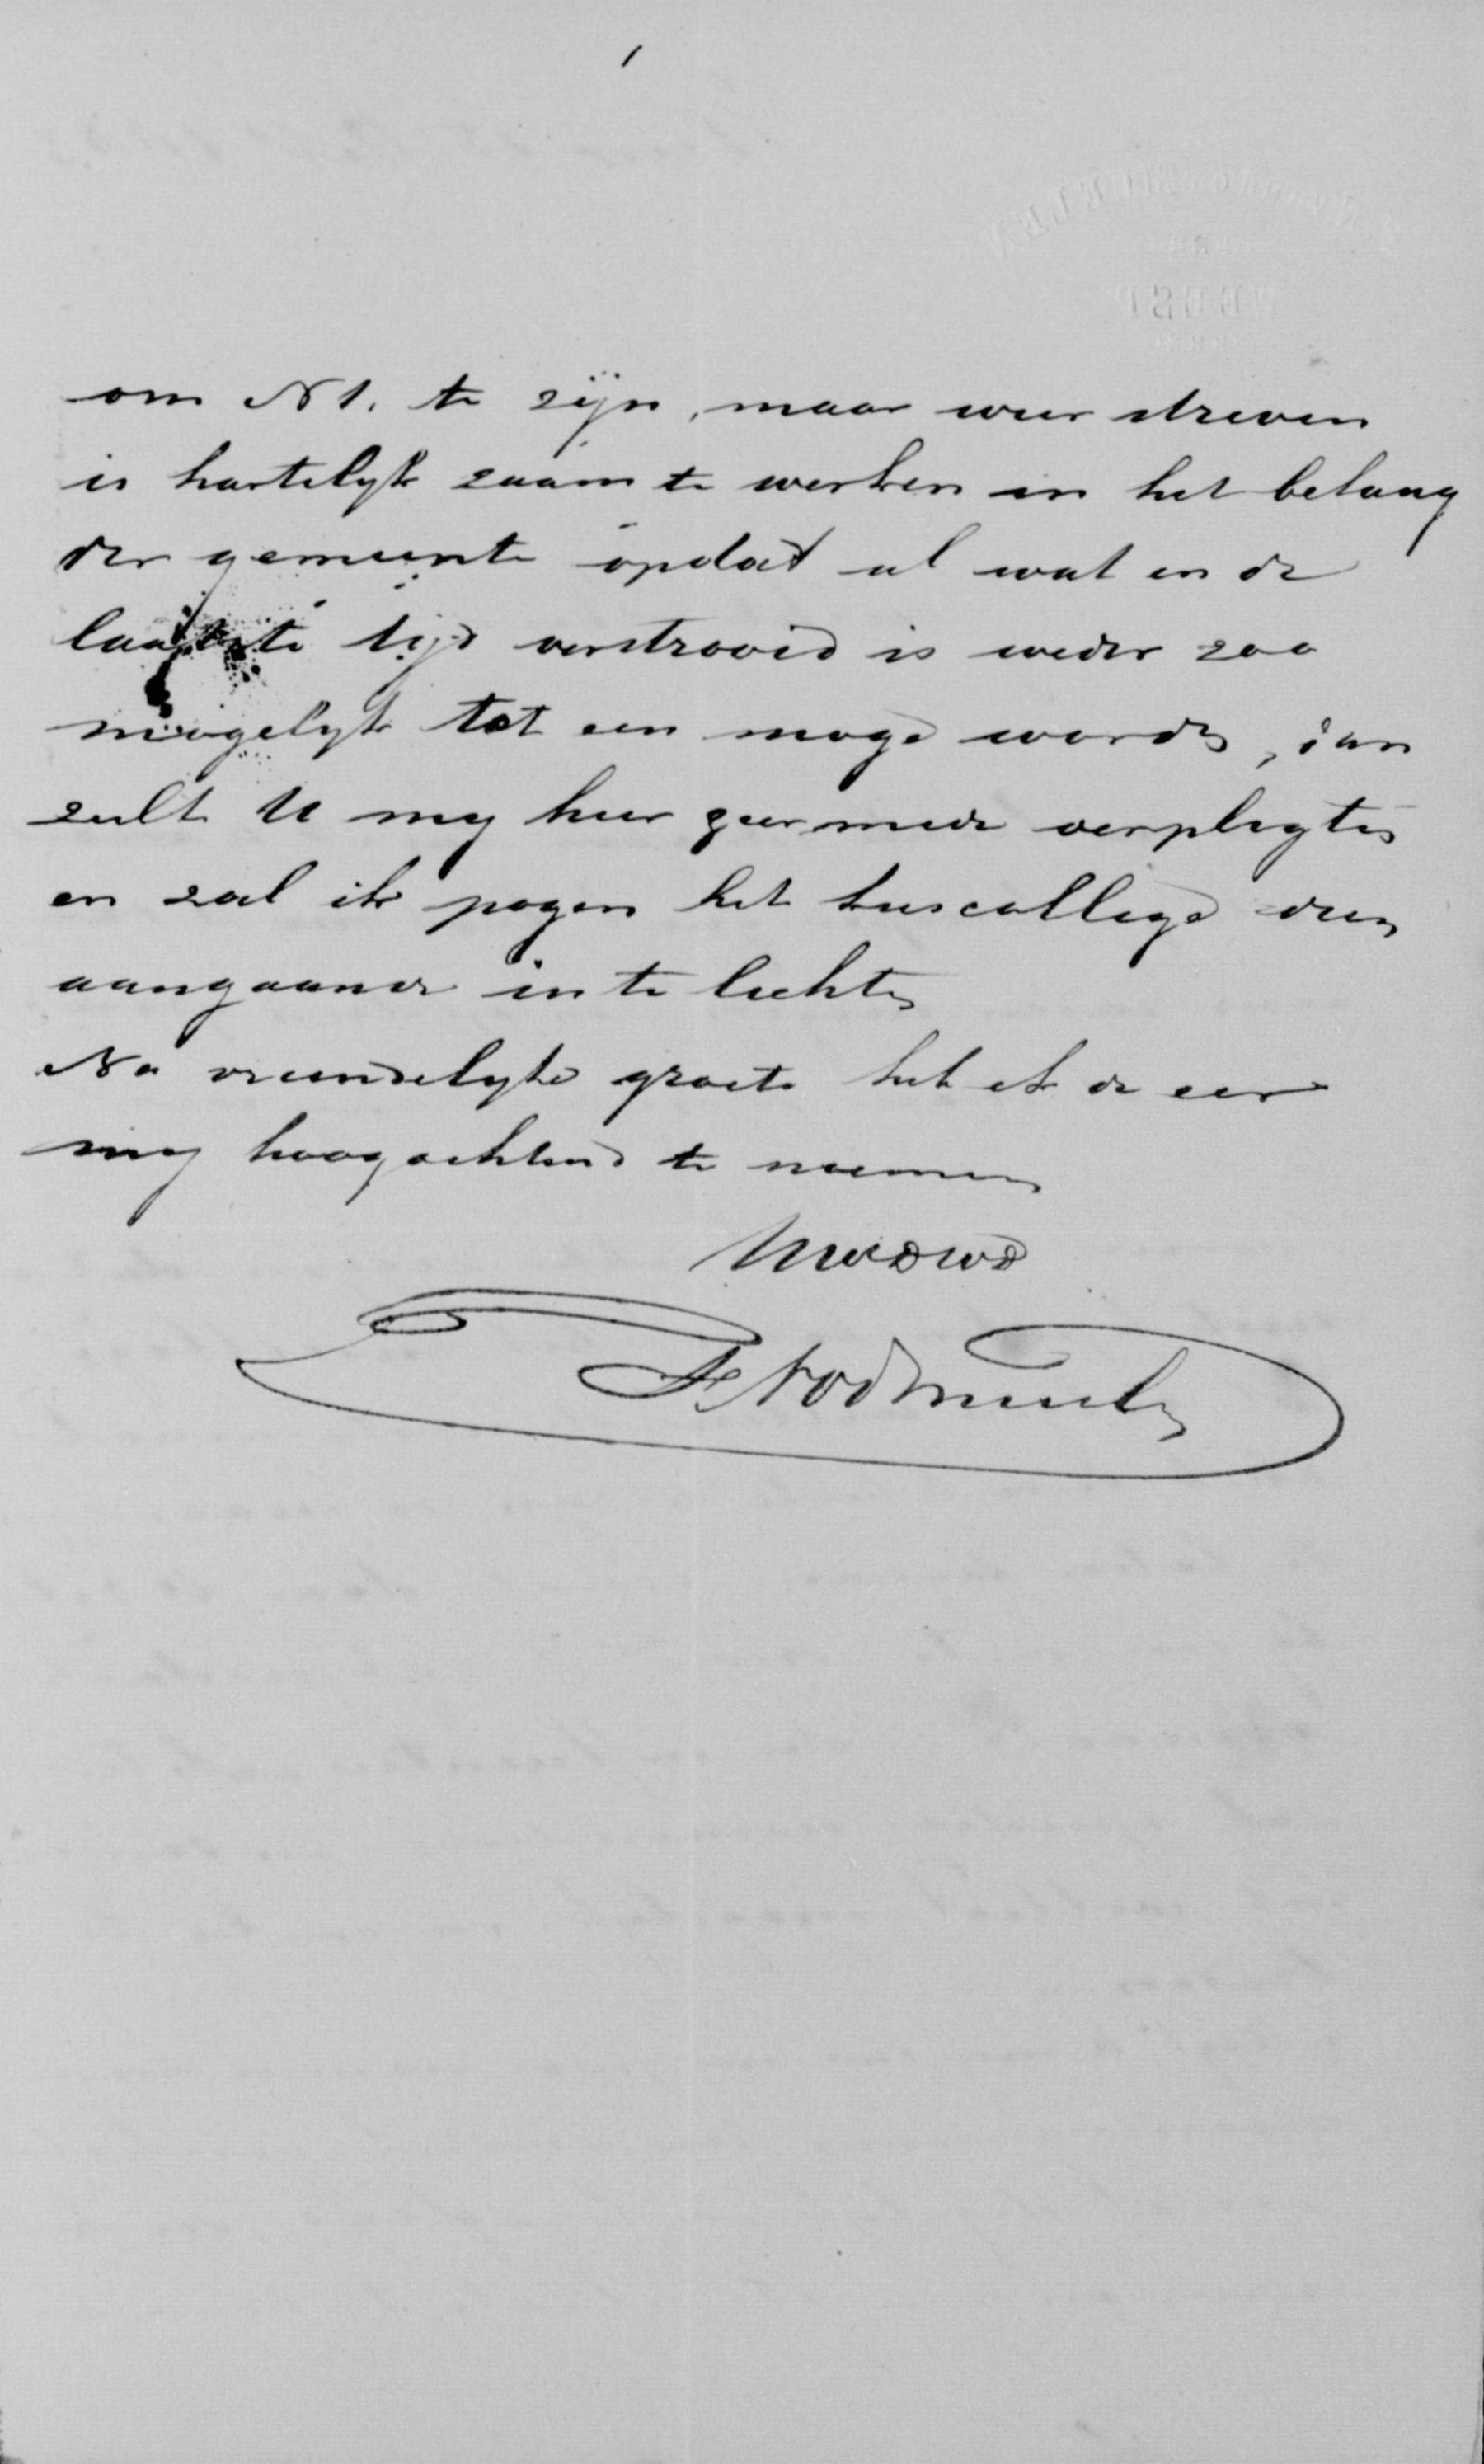 om N 1. te zijn, maar wier streven
is hartelijk zaam te werken in het belang
der gemeente opdat al wat in de
laatste tijd verstrooid is weder zoo
mogelijk tot een moge worden, dan
zult U mij hier zeer mede verpligten
en zal ik pogen het kiescollege dien
aangaande in te lichten
Na vriendelijke groete heb ik de eer
mij hoogachtend te noemen
UwEdwd